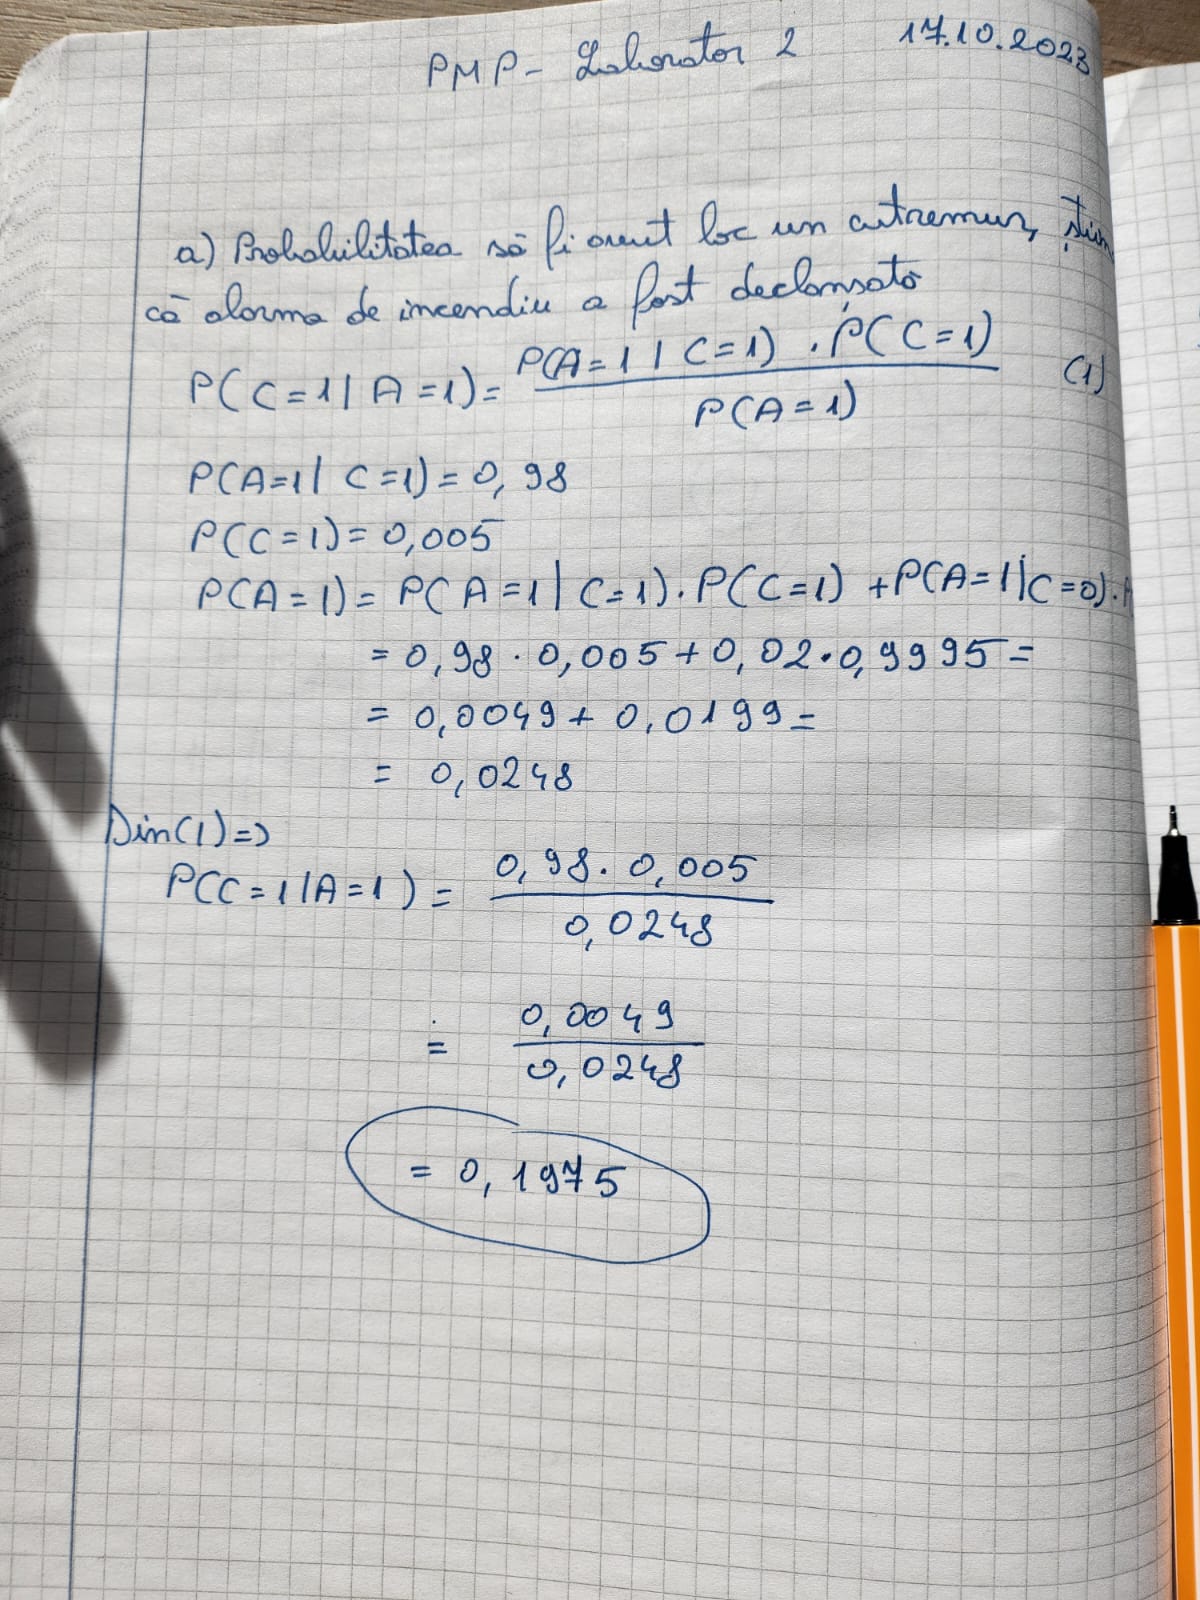 PMP - Laborator 2 17.10.2023
a) Probabilitatea să fi avut loc un cutremur, știin
că alarma de incendiu a fost declanșată
P(C=1 | A=1) = P(A=1 | C=1) · P(C=1) / P(A=1) (1)
P(A=1 | C=1) = 0,98
P(C=1) = 0,005
P(A=1) = P(A=1 | C=1) · P(C=1) + P(A=1 | C=0) ·
= 0,98 · 0,005 + 0,02 · 0,9995 =
= 0,0049 + 0,0199 =
= 0,0248
Din (1) =>
P(C=1 | A=1) = 0,98 · 0,005 / 0,0248
= 0,0049 / 0,0248
= 0,1975